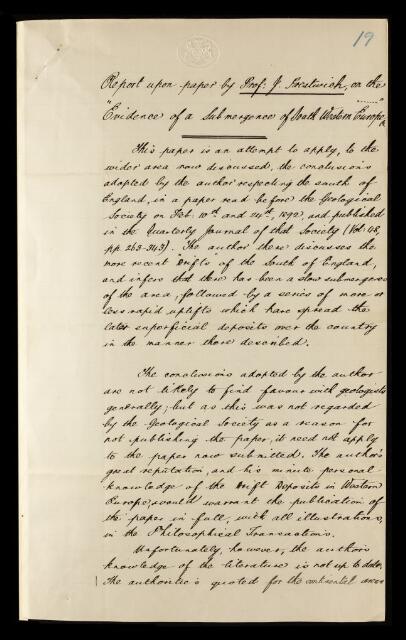 19
Report upon paper by Prof: J. Prestwich, on the
"Evidence of a Submergence of South Western Europe"
This paper is an attempt to apply, to the
wider area now discussed, the conclusions
adopted by the author respecting the south of
England, in a paper read before the Geological
Society on Feb. 10th and 24th, 1892, and published
in the Quarterly Journal of that Society (Vol. 48,
pp. 263-343). The author there discusses the
more recent "Drifts" of the South of England,
and infers that there has been a slow submergence
of the area, followed by a series of more or
less rapid uplifts which have spread the
later superficial deposits over the country
in the manner there described.
The conclusions adopted by the author
are not likely to find favour with geologists
generally; but as this was not regarded
by the Geological Society as a reason for
not publishing the paper, it need not apply
to the paper now submitted. The author's
great reputation, and his minute personal
knowledge of the Drift Deposits in Western
Europe, would warrant the publication of
the paper in full, with all illustrations,
in the Philosophical Transactions.
Unfortunately, however, the author's
knowledge of the literature is not up to date.
The authorities quoted for the continental areas